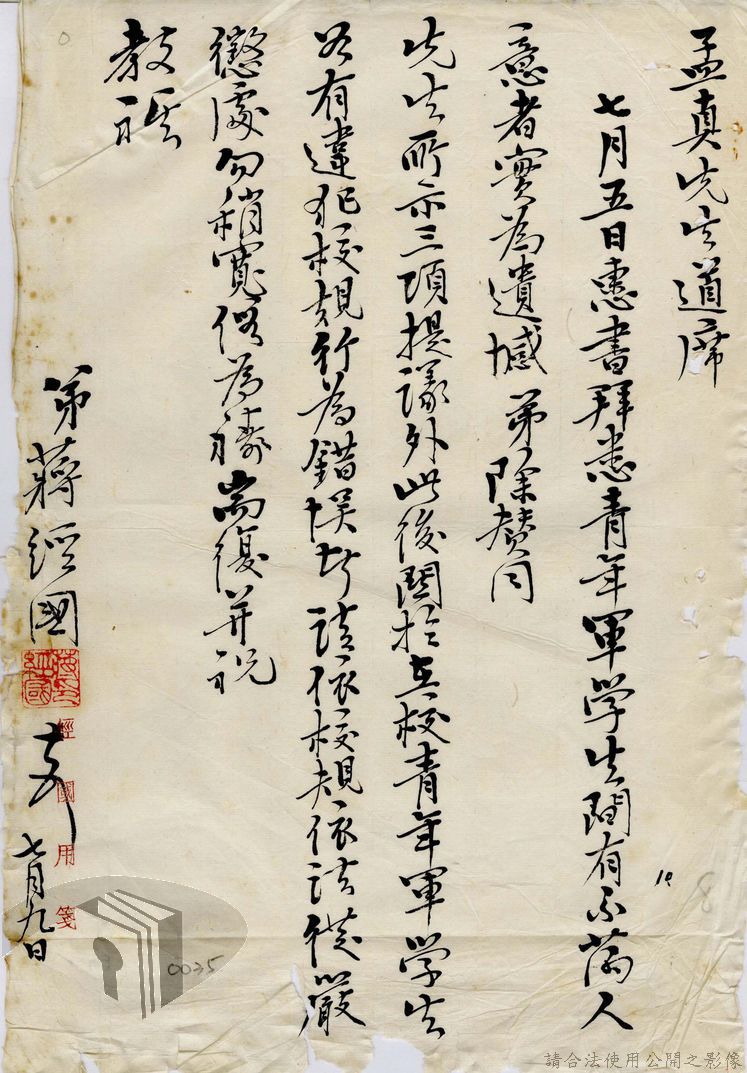 孟真先生道席
七月五日惠書拜悉青年軍學生間有不滿人
意者實為遺憾弟除贊同
先生所示三項提議外此後關於在校青年軍學生
如有違犯校規行為錯誤時請依校規依法從嚴
懲處勿稍寬假為禱耑復并祝
教祺
弟蔣經國
七月九日
經國用箋
0035
請合法使用公開之影像